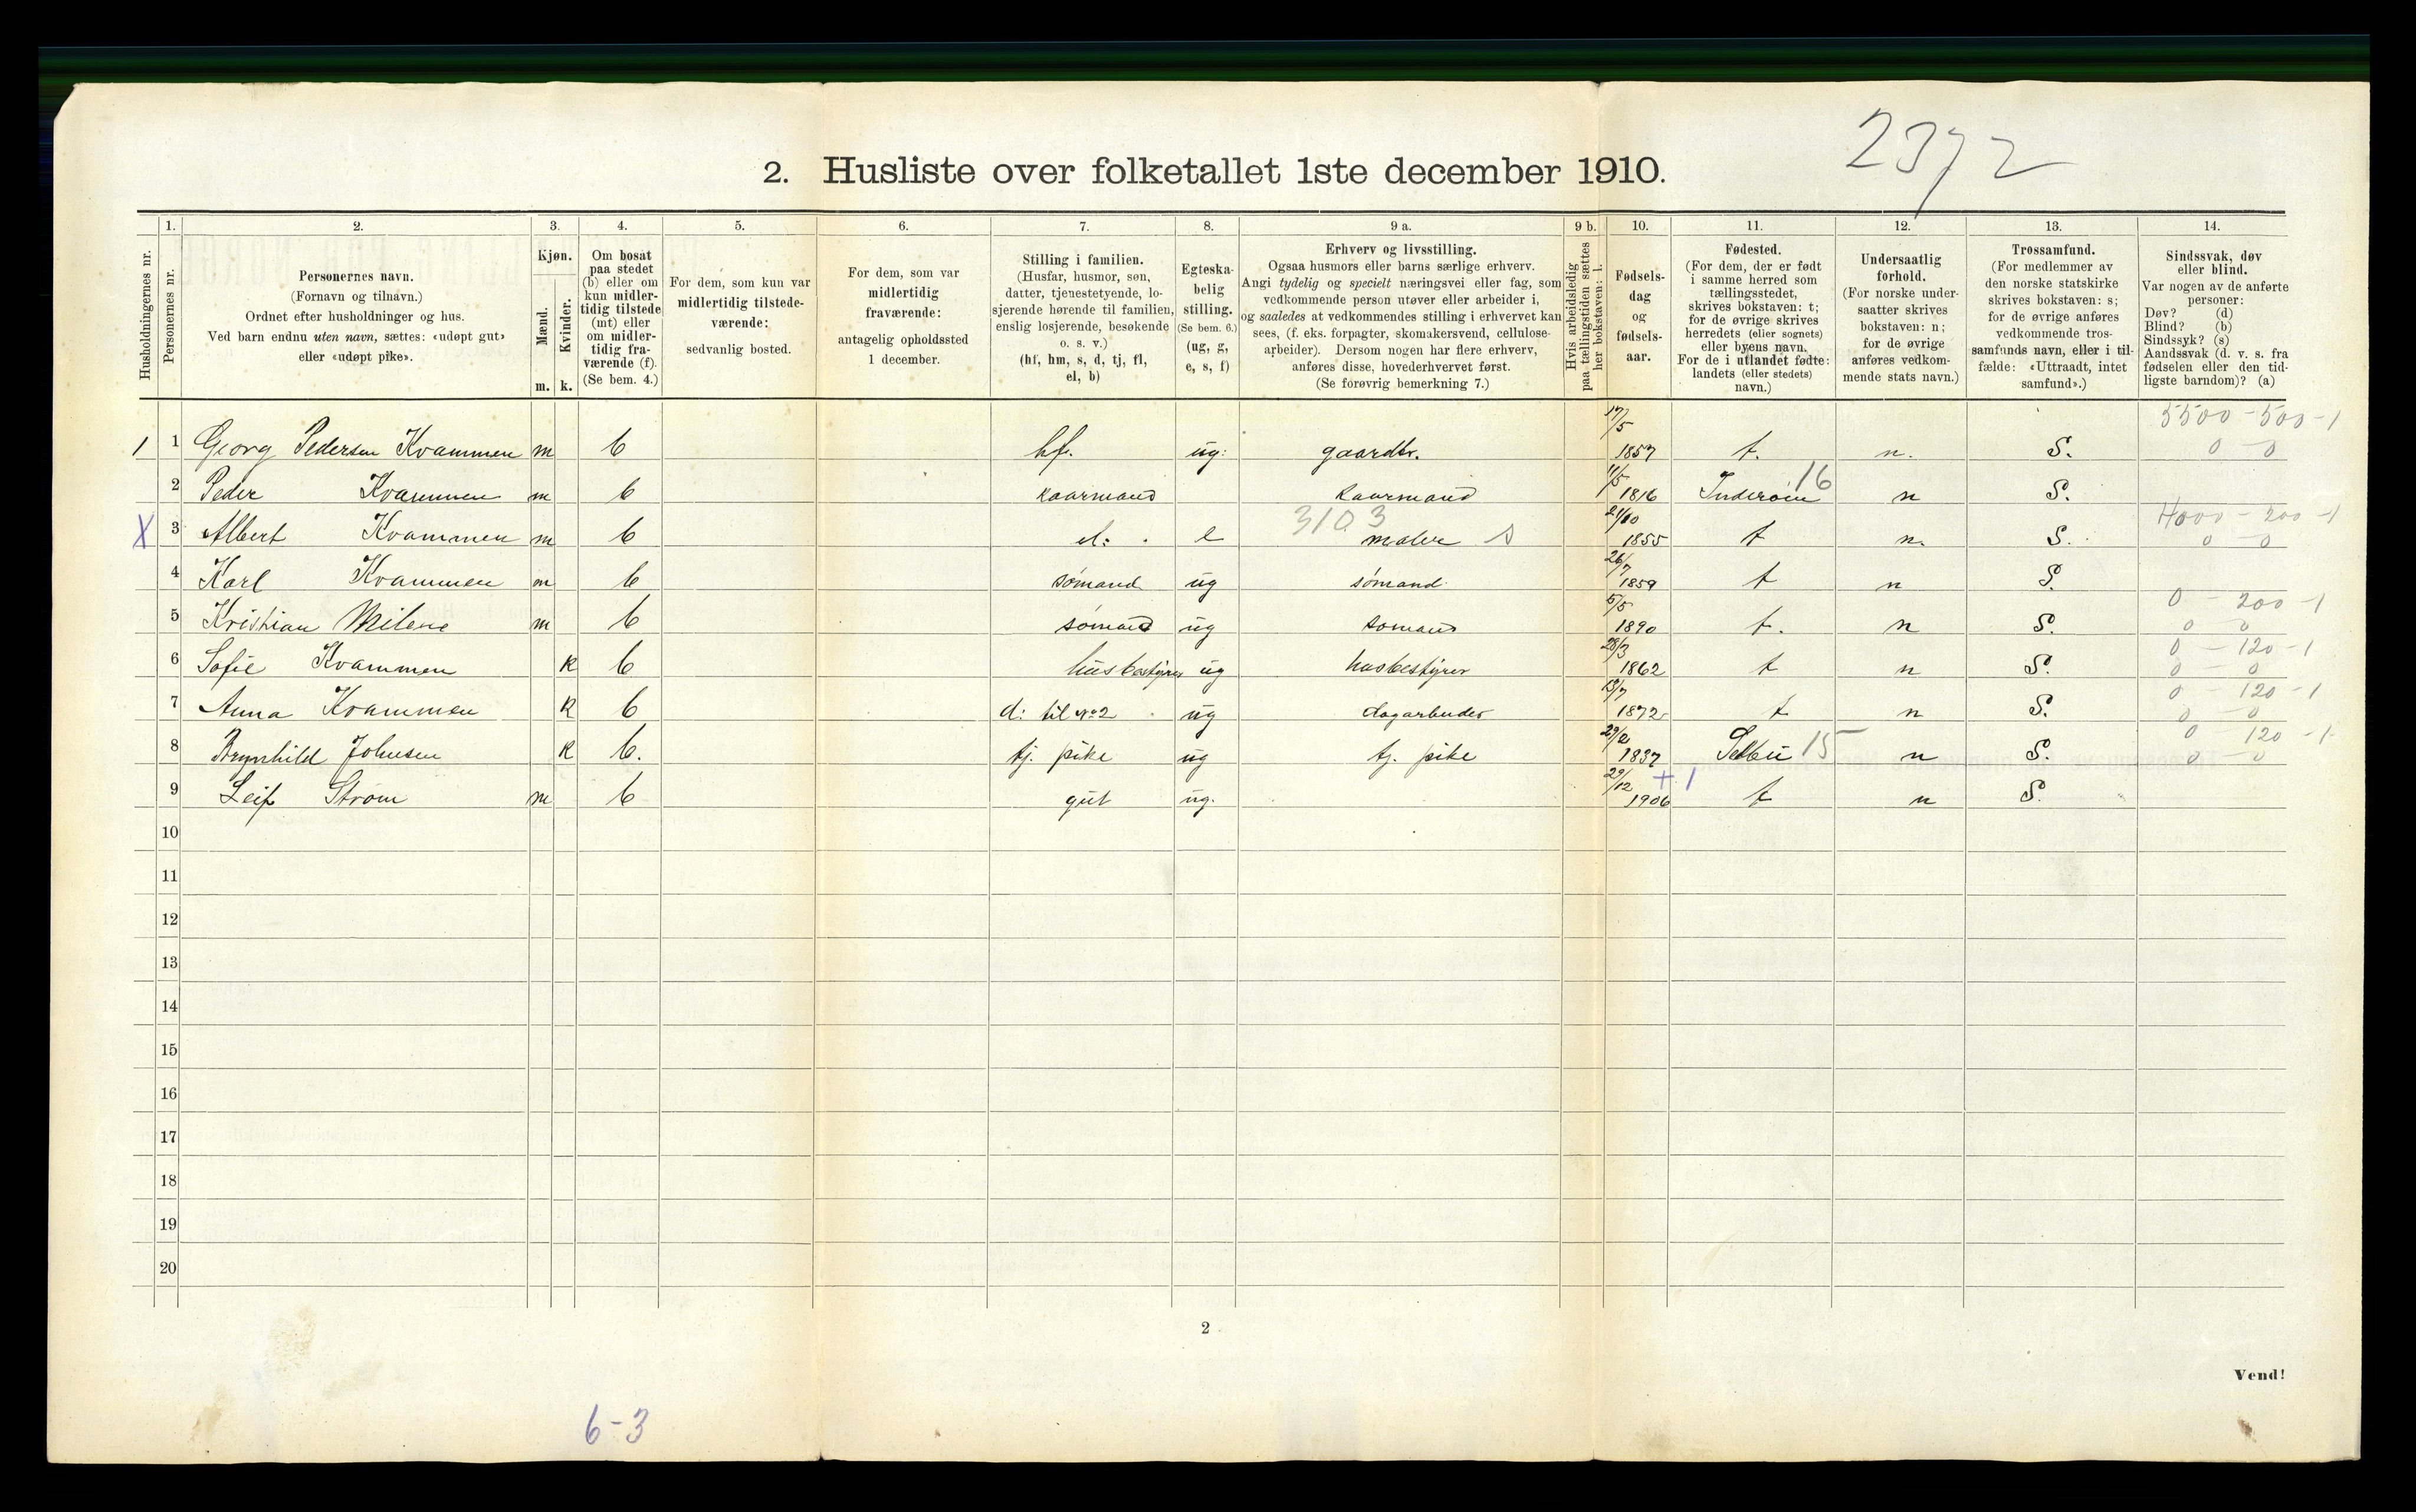 2372
2. Husliste over folketallet 1ste december 1910.
Husholdningernes nr.
1.
Personernes nr.
2.
Personernes navn.
(Fornavn og tilnavn.)
Ordnet efter husholdninger og hus.
Ved barn endnu uten navn, sættes: «udøpt gut»
eller «udøpt pike».
3.
Kjøn.
Mænd.
m.
Kvinder.
k.
4.
Om bosat
paa stedet
(b) eller om
kun midler-
tidig tilstede
(mt) eller
om midler-
tidig fra-
værende (f).
(Se bem. 4.)
5.
For dem, som kun var
midlertidig tilstede-
værende:
sedvanlig bosted.
6.
For dem, som var
midlertidig
fraværende:
antagelig opholdssted
1 december.
7.
Stilling i familien.
(Husfar, husmor, søn,
datter, tjenestetyende, lo-
sjerende hørende til familien,
enslig losjerende, besøkende
o. s. v.)
(hf, hm, s, d, tj, fl,
el, b)
8.
Egteska-
belig
stilling.
(Se bem. 6.)
(ug, g,
e, s, f)
9 a.
Erhverv og livsstilling.
Ogsaa husmors eller barns særlige erhverv.
Angi tydelig og specielt næringsvei eller fag, som
vedkommende person utøver eller arbeider i,
og saaledes at vedkommendes stilling i erhvervet kan
sees, (f. eks. forpagter, skomakersvend, cellulose-
arbeider). Dersom nogen har flere erhverv,
anføres disse, hovederhvervet først.
(Se forøvrig bemerkning 7.)
9 b.
Hvis arbeidsledig
paa tællingstiden sættes
her bokstaven: l.
10.
Fødsels-
dag
og
fødsels-
aar.
11.
Fødested.
(For dem, der er født
i samme herred som
tællingsstedet,
skrives bokstaven: t;
for de øvrige skrives
herredets (eller sognets)
eller byens navn.
For de i utlandet fødte:
landets (eller stedets)
navn.)
12.
Undersaatlig
forhold.
(For norske under-
saatter skrives
bokstaven: n;
for de øvrige
anføres vedkom-
mende stats navn.)
13.
Trossamfund.
(For medlemmer av
den norske statskirke
skrives bokstaven: s;
for de øvrige anføres
vedkommende tros-
samfunds navn, eller i til-
fælde: «Uttraadt, intet
samfund».)
14.
Sindssvak, døv
eller blind.
Var nogen av de anførte
personer:
Døv? (d)
Blind? (b)
Sindssyk? (s)
Aandssvak (d. v. s. fra
fødselen eller den tid-
ligste barndom)? (a)
1 1 Georg Pedersen Kvammen m b hf. ug: gaardbr. 17/5 1857 t. n. S. 5500-500-1 0-0
2 Peder Kvammen m b kaarmand kaarmand 11/5 1816 Inderøien 16 n S.
X 3 Albert Kvammen m b el: e 3103 maler s 21/10 1855 t n. S. 4000-200-1 0-0
4 Karl Kvammen m b sømand ug sømand 26/7 1859 t n S.
5 Kristian Milene m b sømand ug sømand 5/5 1890 t. n S. 0-200-1 0-0
6 Sofie Kvammen k b husbestyrer ug husbestyrer 28/3 1862 t n S. 0-120-1 0-0
7 Anna Kvammen k b d: til No 2 ug dagarbuder 13/7 1872 t n S. 0-120-1 0-0
8 Brynhild Johnsen k b. tj. pike ug tj. pike 1837 Selbu 15 n S. 0 120-1 0-0
9 Leif Strøm m b gut ug. 29/12 1906 + 1 t n S.
10
11
12
13
14
15
16
17
18
19
20
2
Vend!
6-3